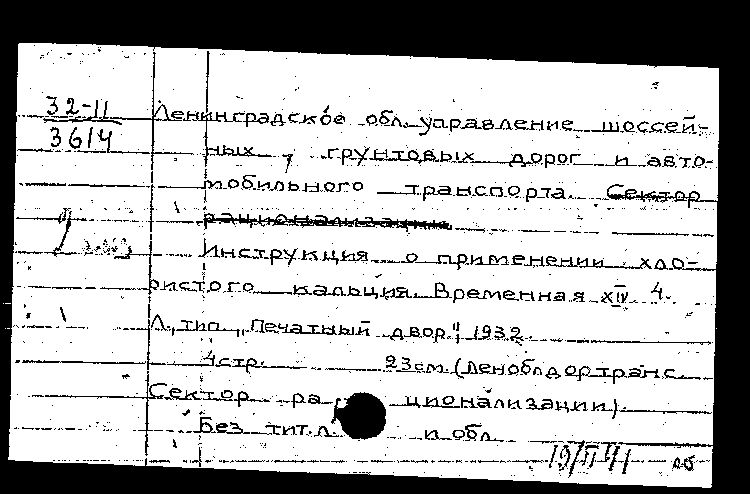 32-11
3614
2 экз
Ленинградское обл. управление шоссей-
ных, грунтовых дорог и авто-
мобильного транспорта. Сектор
рационализации
Инструкция о применении хло-
ристого кальция. Временная XIV 4.
Л., тип. "Печатный двор", 1932.
4стр. 23см. (Леноблдортранс.
Сектор рационализации).
Без тит. л. и обл.
19/II 41 лб